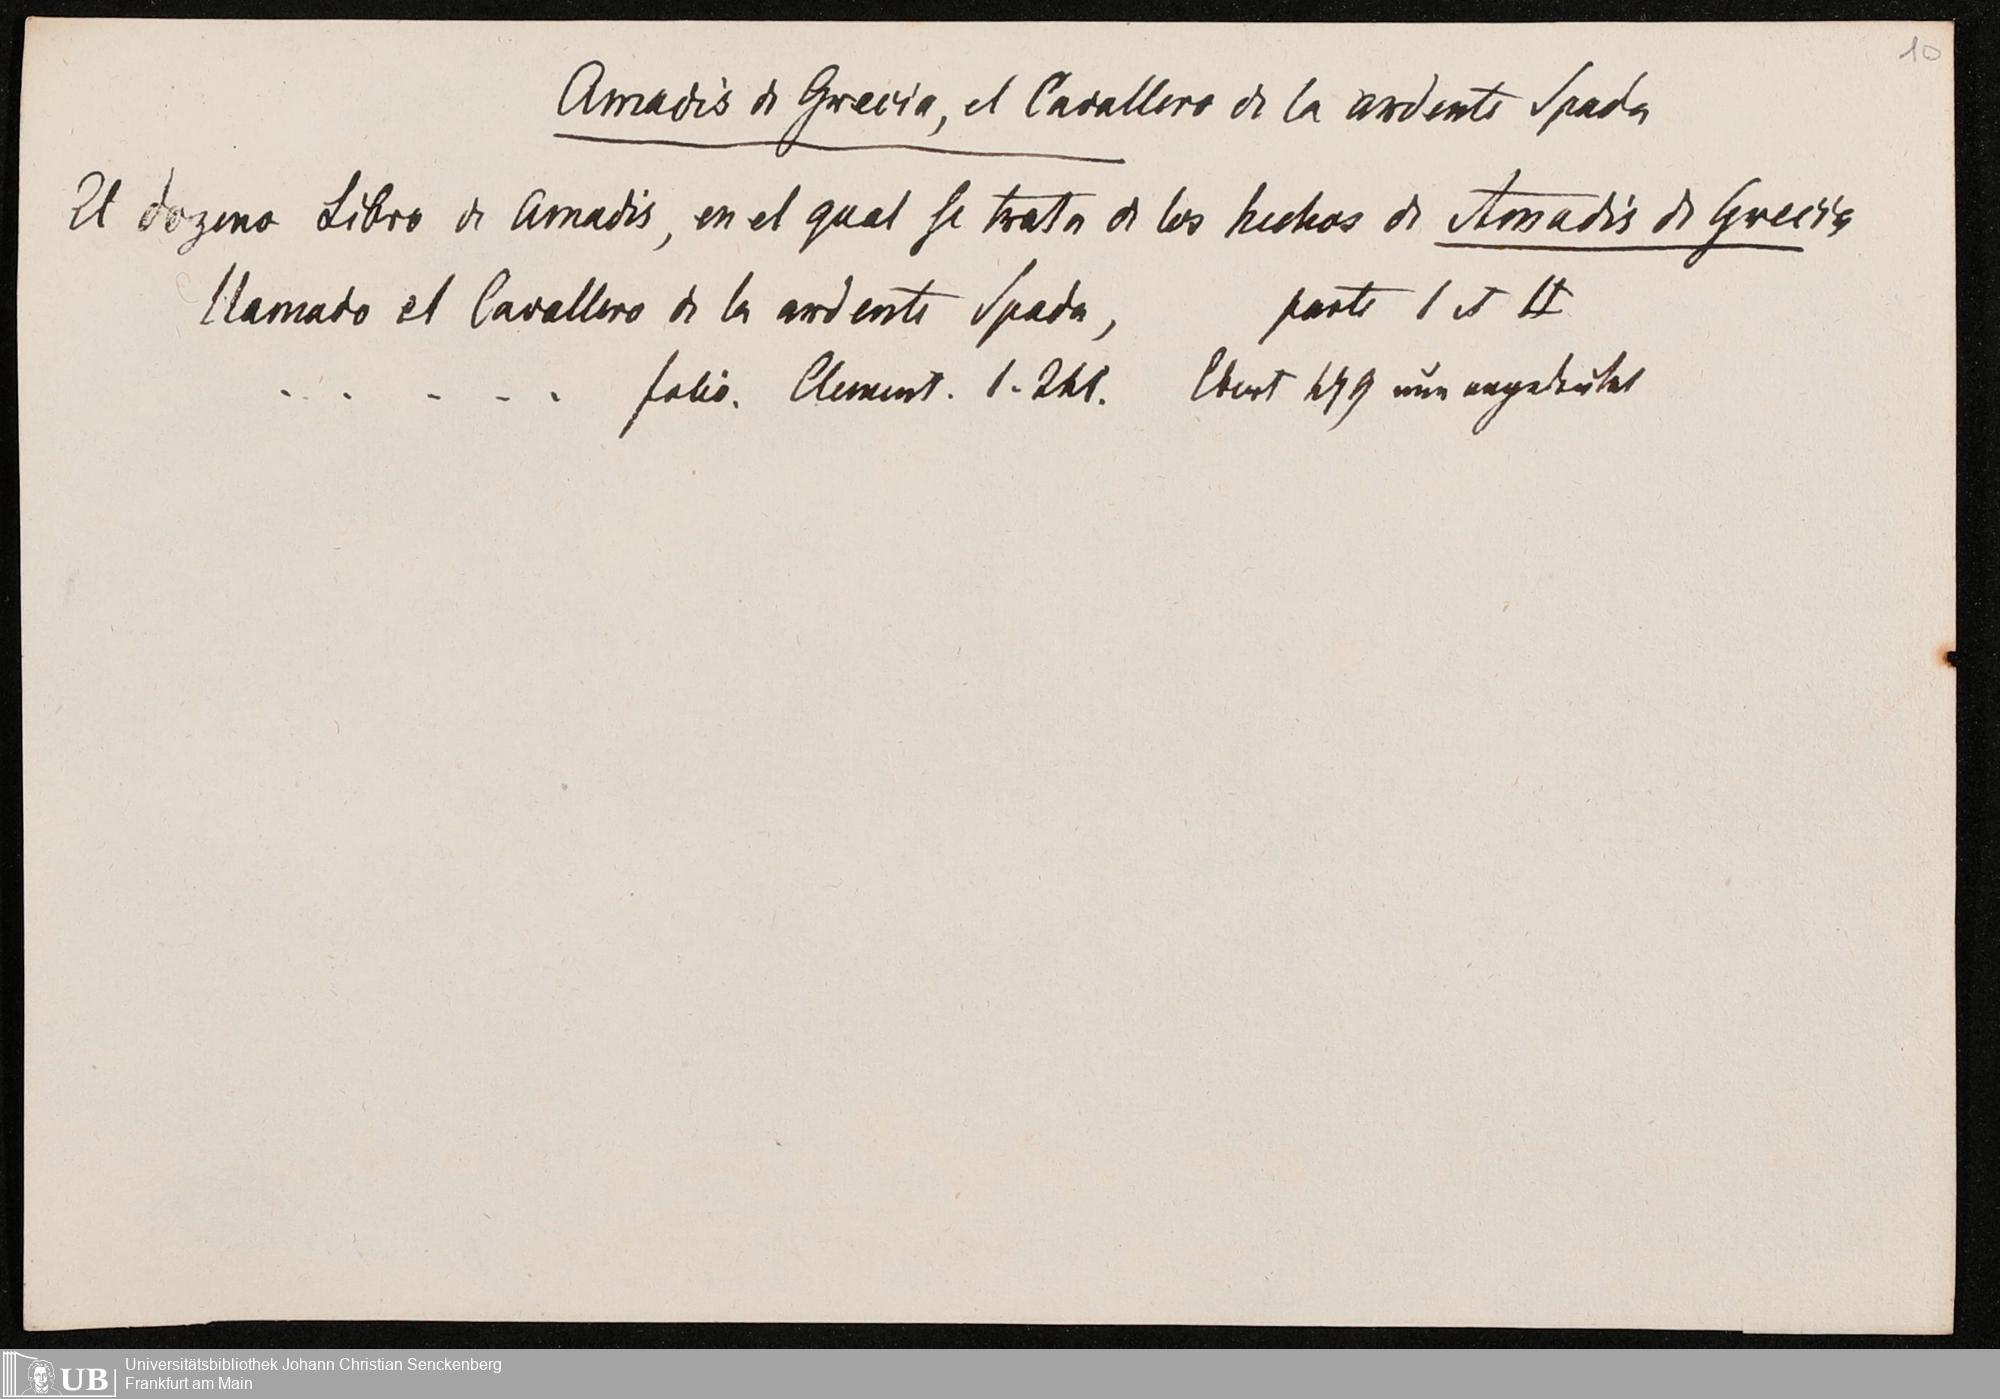 10
Amadis de Grecia, el Cavallero de la ardente Spada
El dozeno Libro de Amadis, en el qual se trata de los hechos de Amadis de Grecia
llamado el Cavallero de la ardente Spada, parte I et II
. . . . . . folio. Clement. 1. Ebert 479 nur angedeutet
UB Universitätsbibliothek Johann Christian Senckenberg
Frankfurt am Main